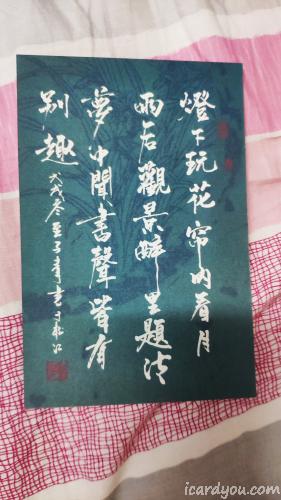 燈下玩花帘内看月
雨后觀景醉里題诗
夢中聞書聲皆有
别趣 戊戌冬至子青書于松江
icardyou.com